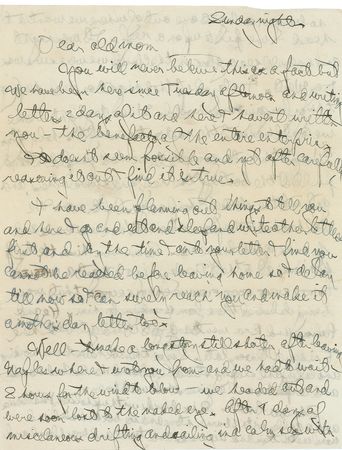 Sunday night.
Dear old mom
You will never believe this is a fact but
we have been here since Tuesday afternoon and writing
letters 2 days of it and here I haven't written
you - the benefactor of the entire enterprise.
It doesn't seem possible and yet after carefully
reasoning it out I find it is true.
I have been planning out things to tell you
and here I go and eat and sleep and write others
first and by the time I get to your letter I find you
cannot be reached before leaving home so I delay
till now so I can surely reach you and make it
another day letter too.
Well - to make a long story still shorter after leaving
Naples where I wrote you from and we had to wait
2 hours for the wind to blow - we headed out and
were soon lost to the naked eye. After 4 days of
miscellaneous drifting and sailing in a calm sea